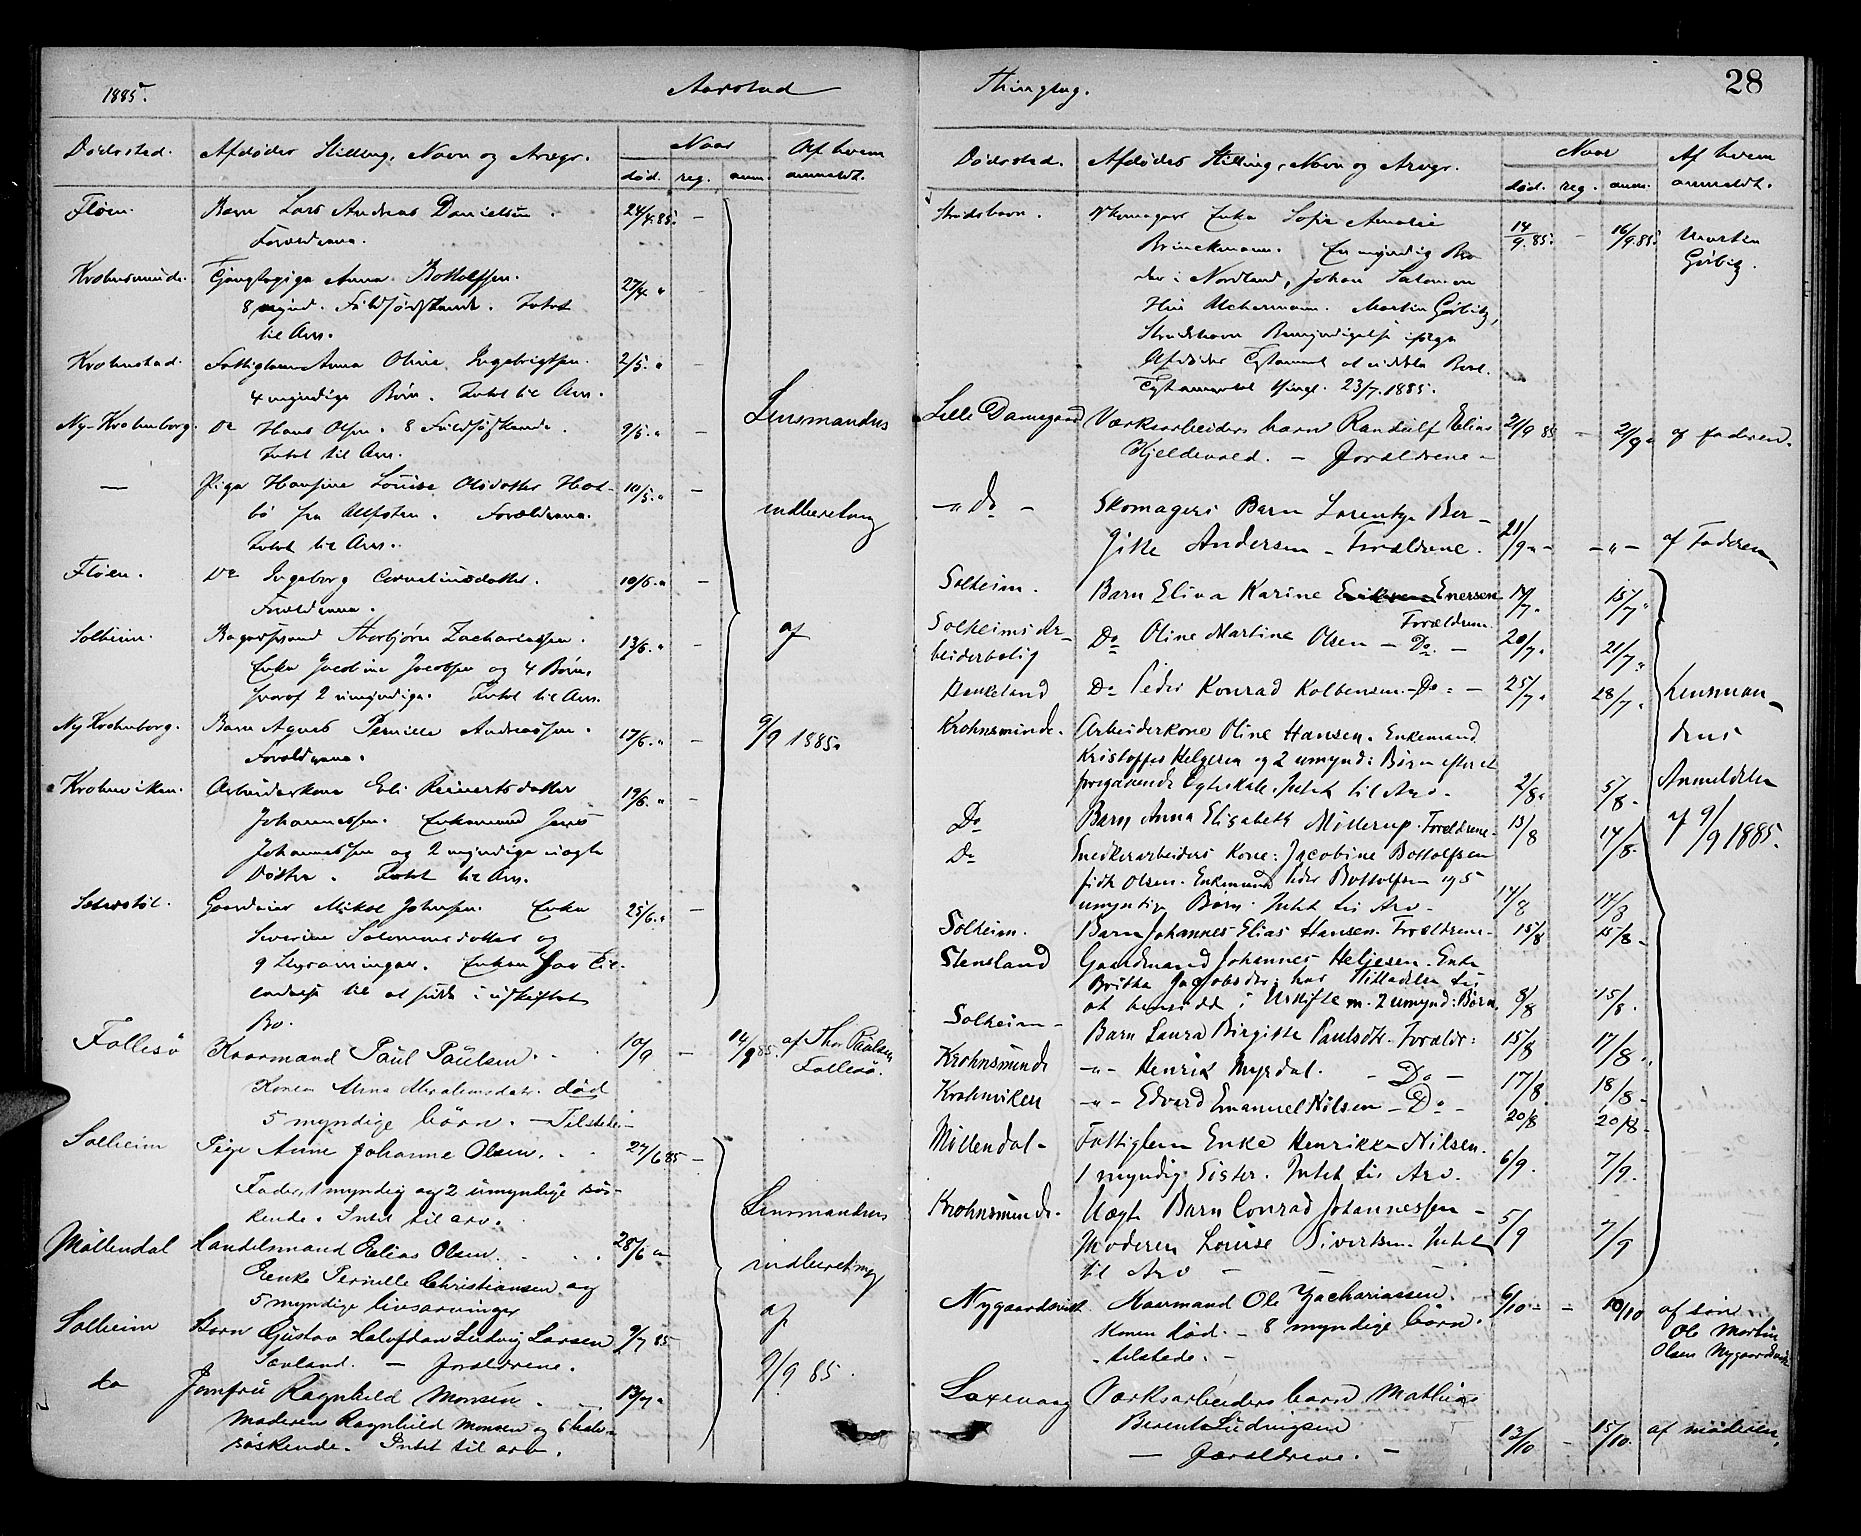 1885. Aarstad
Dødssted. Afdødes Stilling, Navn og Arvgr. Naar Af hvem
død. reg. anm. anmeldt.
Fløen. Barn Lars Andreas Danielsen. 24/4.85. -
Forældrene.
Krohnsminde. Tjenestepige Anna Bottolfsen. 27/4. "
8 mynd. Fuldsødskende. Intet
til Arv.
Krohnstad. Fattiglem Anna Oline Ingebrigtsen. 2/5. " -
4 myndige Børn. Intet til Arv.
Ny-Krohnborg. Do Hans Olsen. 8 Fuldsødskende. 9/5. " - Lensmandens
Intet til Arv.
— Pige Hansine Louise Olsdatter 10/5. " - indberetning
fra Forældrene.
Intet til Arv.
Fløen. Do Ingeborg Corneliusdatter. 10/6. " -
Forældrene.
Solheim. Thorbjørn Zachariassen. 13/6. " - af
Enke Jacobsen og 4 Børn,
hvoraf 2 umyndige. Intet til Arv.
Ny Krohnborg. Barn Agnes Pernille Andreassen. 17/6. " - 9/9 1885.
Forældrene.
Krohnviken. Arbeiderkone Eli Reinertsdatter 19/6. " -
Johannessen. Enkemand Jens
Johannessen og 2 myndige uægte
Døttre. Intet til Arv.
Gaardeier Mikal Johnsen. Enke 25/6. " -
Severine Salomonsdatter og
9 Livsarvinger. Enken har Til-
ladelse til at sidde i uskiftet
Bo.
Follesø Kaarmand Paul Paulsen. 10/9 - 14/9 85. af Thor Paulsen
Follesø.
Konen død
5 myndige børn. — Tilstede —
Solheim Pige Anne Johanne Olsen. 27/6 85 -
Fader, 1 myndig og 2 umyndige søs-
kende. Intet til arv. Lensmandens
Møllendal Handelsmand Elias Olsen. 28/6 "
Enke Pernille Christiansen og indberetning
5 myndige livsarvinger af
Solheim Barn Gustav Halvfdan Ludvig Larsen 9/7 85
Sævland. — forældrene. 9/9 85.
do Jomfru Ragnhild Monsen. 13/7 "
Moderen Ragnhild Monsen og 6 halv-
søskende. Intet til arv.
Thinglag. 28
Dødssted. Afdødes Stilling, Navn og Arvgr. Naar Af hvem
død. reg. anm. anmeldt.
Strudshavn. Enke Sofie Amalie 14/9.85. - 16/9.85. Martin
Brinckmann. En myndig Bro- Görbitz.
der i Nordland, Johan Salomon
Martin Görbitz,
Strudshavn Bemyndigelse ifølge
Afdødes Testament at
Testamentet 23/7.1885.
Lille Damsgaard Værksarbeiders barn Randulf Elias 21/9 85 - 21/9 " af faderen.
Kjeldevold. — Forældrene —
" Do - Skomagers Barn Lorentze Ber-
gitte Andersen — Forældrene. 21/9 " - - " - af Faderen
Solheim. Barn Elina Karine Enersen 15/7 "
Forældrene.
Solheims Ar- Do Oline Martine Olsen — Do. — 20/7 " 21/7 "
beiderbolig
Do Peder Konrad Kolbensen. Do — 25/7 " 28/7 " Lensman-
Krohnsminde. Arbeiderkone Oline Hansen. Enkemand dens
Kristoffer Helgesen og 2 umynd: Børn efter et
foregaaende Egteskab. Intet til Arv. 2/8 " 5/8 - Anmeldelse
Do Barn Anna Elisabeth Møllerup. Forældrene. 13/8 14/8 - af 9/9 1885.
Do Snedkerarbeiders Kone: Jacobine Bottolfsen
født Olsen. Enkemand Peder Bottolfsen og 5
umyndige Børn. Intet til Arv. 14/8 17/8
Solheim. Barn Johannes Elias Hansen. Forældrene. 15/8 15/8 -
Stensland Gaardmand Johannes Heljesen. Enke
Britha Jacobsdtr; har Tilladelse til
at hensidde i Uskifte m. 2 umynd: Børn. 8/8 15/8 -
Solheim — Barn Laura Birgitte Paulsdtr. Forældr: 15/8 17/8 "
Krohnsminde — " - Henrik Myrdal. — Do — 17/8 18/8 -
Krohnviken — " - Edvard Emanuel Nilsen — Do — 20/8 20/8 -
Møllendal — Fattiglem Enke Henrikke Nilsen. 6/9. 7/9.
1 myndig Søster. Intet til Arv.
Krohnsminde. Uægte Barn Conrad Johannessen — 5/9 7/9
Moderen Louise Sivertsen. Intet
til Arv —
Nygaardsvik Kaarmand Ole Zachariassen. 6/10 - - 10/10 af søn
Konen død. — 8 myndige børn. Ole Martin
- tilstede. - Olsen Nygaardsvik
Laxevaag Værksarbeiders barn Mathias
Berent Ludvigsen 13/10 - 15/10. af moderen.
— forældrene. —